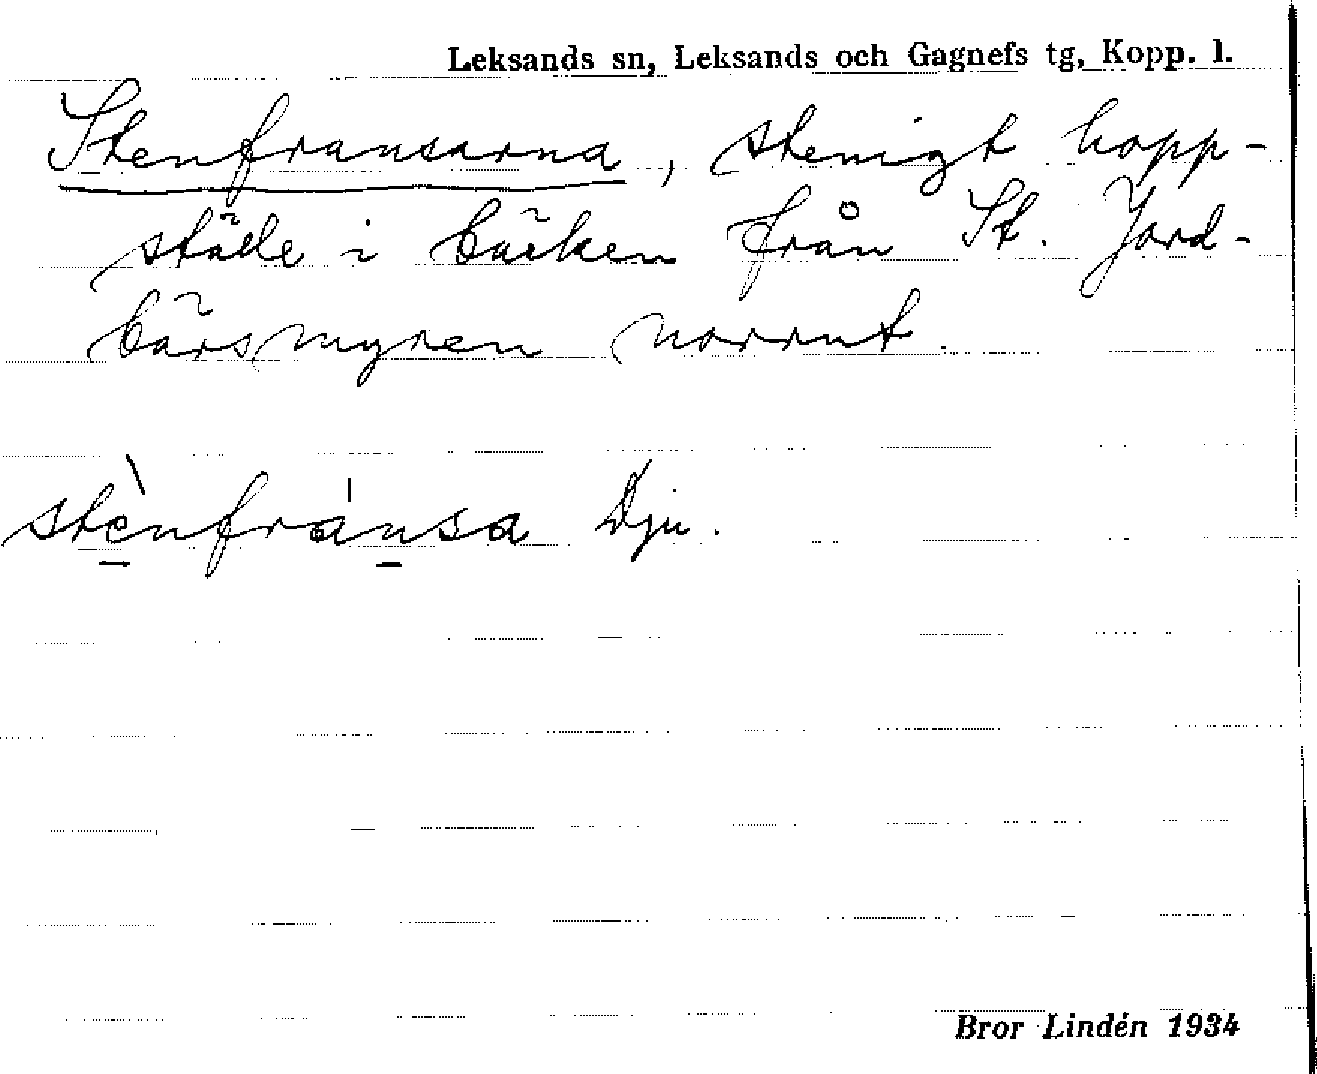 Leksands sn, Leksands och Gagnefs tg, Kopp. l.
Stenfransarna, stenigt hopp-
ställe i bäcken från St. Jord-
bärsmyren norrut.
stènfránsa Dju.
Bror Lindén 1934